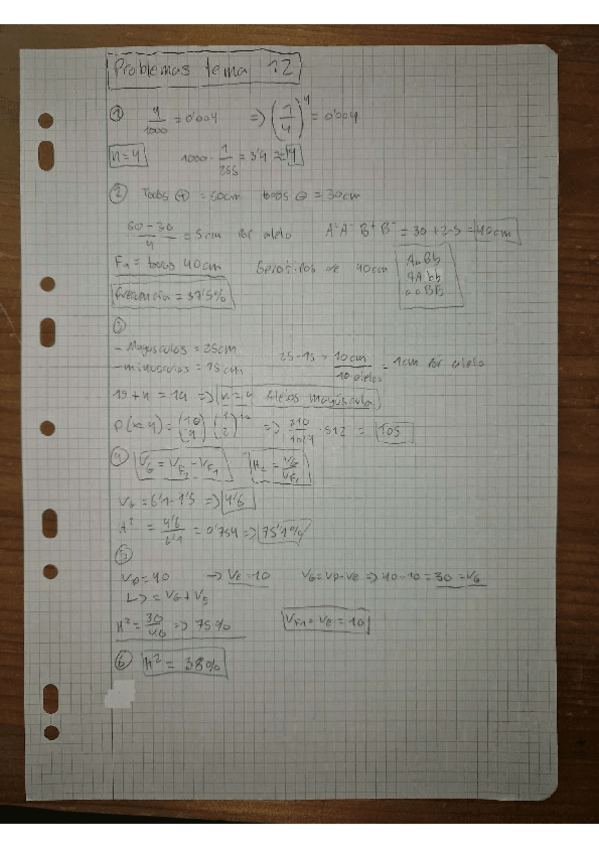 Problemas tema 12
① 4/1000 = 0'004 => (1/4)^4 = 0'004
n = 4 1000 · 1/255 = 3'9 ≈ 4
② Todos ⊕ = 50cm todos ⊖ = 30cm
50-30/4 = 5cm por alelo A⁺A⁻B⁺B⁻ = 30 + 2·5 = 40cm
F₁ = todos 40cm Genotipos de 40cm AaBb
AAbb
aaBB
frecuencia = 37'5%
③
- Mayusculas = 25cm
- minusculas = 15cm 25-15 = 10cm/10 alelos = 1cm por alelo
15 + n = 19 => n = 4 Alelos mayúscula
P(x=4) = (10/4) (1/2)^10 => 210/1024 · 512 = 105
④ VG = VF₂ - VF₁ H² = VG/VF₂
VG = 6'1 - 1'5 => 4'6
H² = 4'6/6'1 = 0'754 => 75'4%
⑤
Vp = 40 -> VE = 10 VG = VP - VE => 40 - 10 = 30 = VG
L> = VG + VE
H² = 30/40 => 75% VF₁ = VE = 10
⑥ h² = 38%